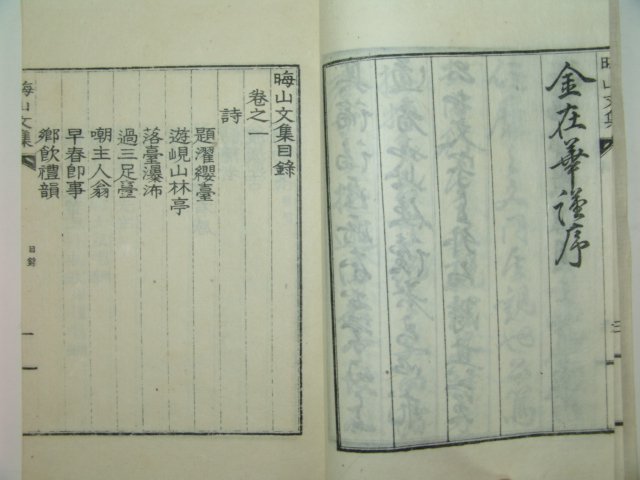 晦山文集
三
金在華謹序
晦山文集目錄
卷之一
詩
題濯纓臺
遊峴山林亭
落臺瀑㳍
過三足臺
嘲主人翁
早春卽事
鄕飮禮韻
晦山文集
目錄
一